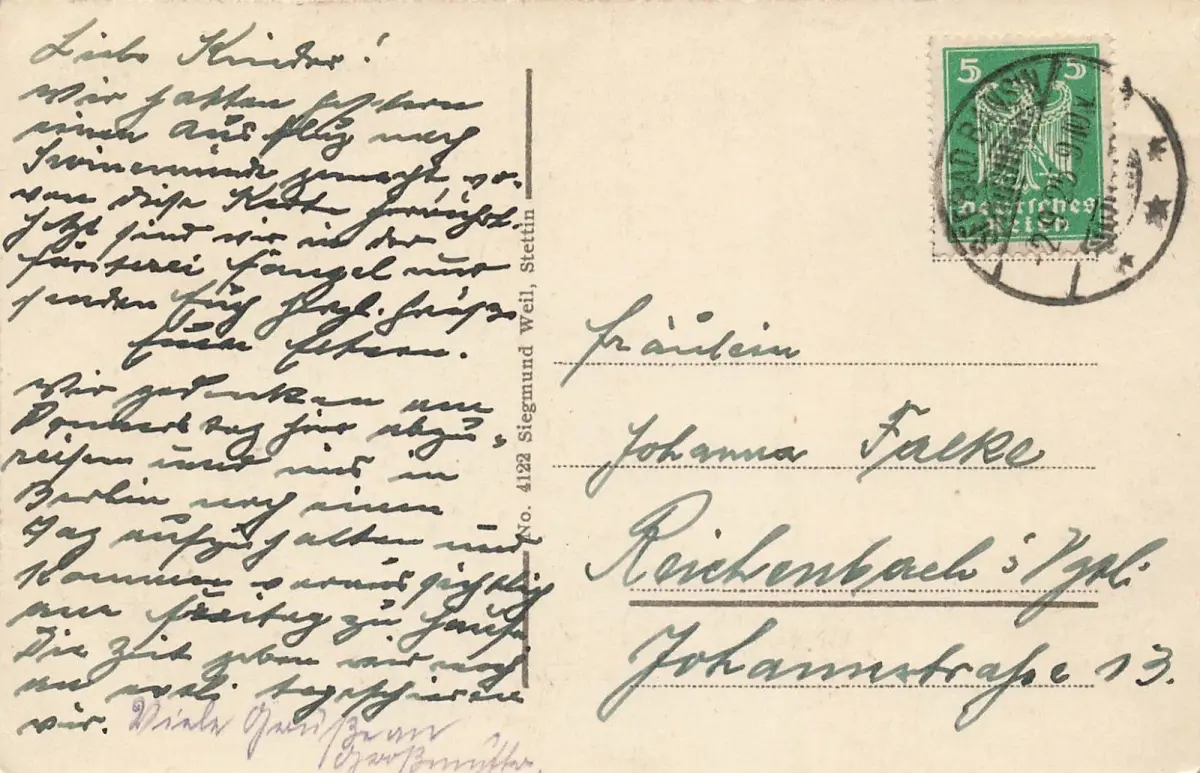 Liebe Kinder!
Wir hatten gestern
einen Ausflug nach
Swinemünde gemacht, wo-
von diese Karte herrührt.
Jetzt sind wir in der
Försterei Fangel und
senden Euch herzl. Grüße
Eure Eltern.
Wir gedenken am
Donnerstag hier abzu-
reisen und uns in
Berlin noch einen
Tag aufzuhalten und
kommen voraussichtlich
am Freitag zu Hause
Die Zeit geben wir noch
an
wir.
Viele Grüße an
Großmutter.
No. 4122 Siegmund Weil, Stettin
5 5
Deutsches
Reich
SEEBAD BANSIN
Fräulein
Johanna Falke
Reichenbach i/Vgtl.
Johannstraße 13.